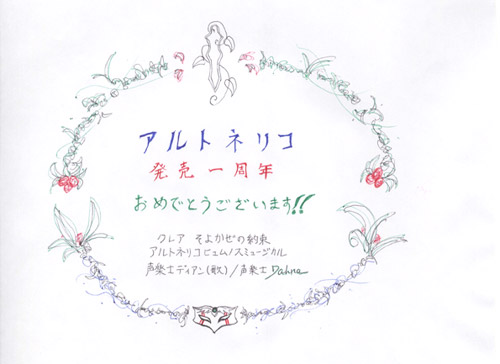 アルトネリコ
発売一周年
おめでとうございます!!
クレア そよかぜの約束
アルトネリコヒュムノスミュージカル
声楽士ディアン(歌)/声楽士 Dahne